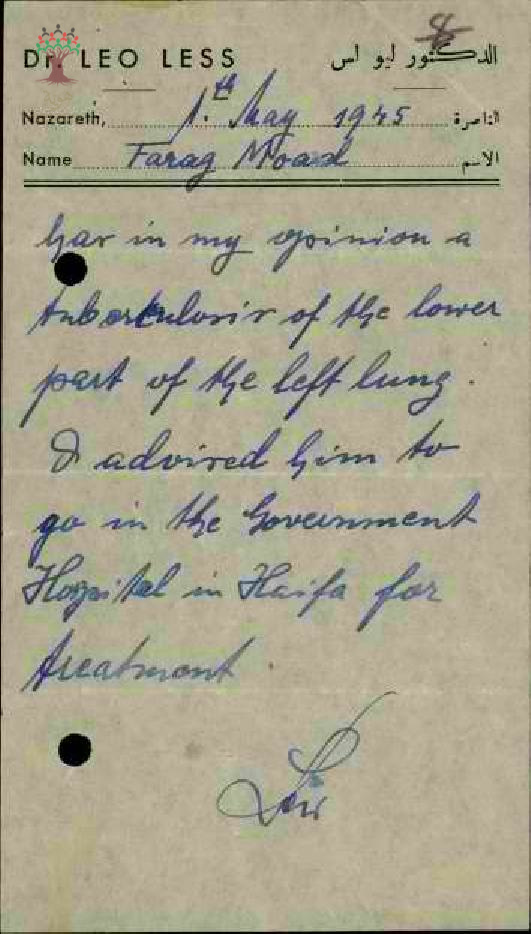 Dr. LEO LESS
الدكتور ليو اس
Nazareth, 1.th May 1945 الناصرة
Name Farag Moad الاسم
has in my opinion a
tuberkulosis of the lower
part of the left lung.
I advised him to
go in the Government
Hospital in Haifa for
treatment.